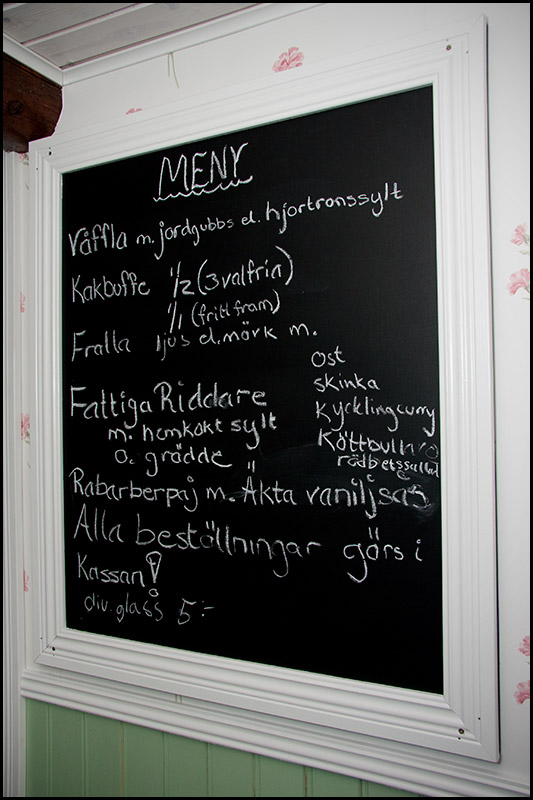 MENY
Våffla m. jordgubbs el. hjortronssylt
Kakbuffe 1/2 (3 valfria)
1/1 (fritt fram)
Fralla ljus el. mörk m.
Ost
skinka
Kycklingcurry
Köttbullar o
rödbetssallad
Fattiga Riddare
m. hemkokt sylt
o. grädde
Rabarberpaj m. Äkta vaniljsås
Alla beställningar görs i
Kassan!
div. glass 5:-